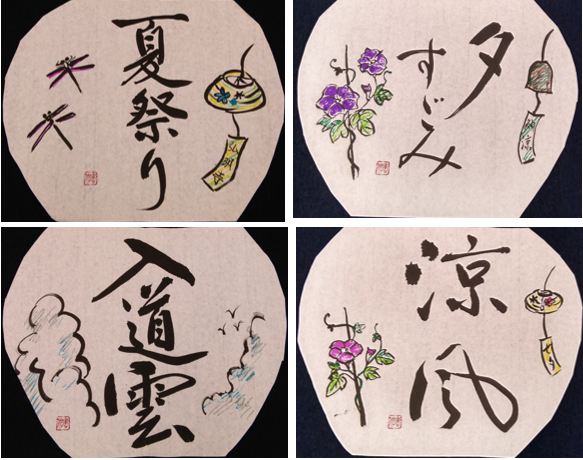 夏祭り
夕すずみ
涼
入道雲
涼風